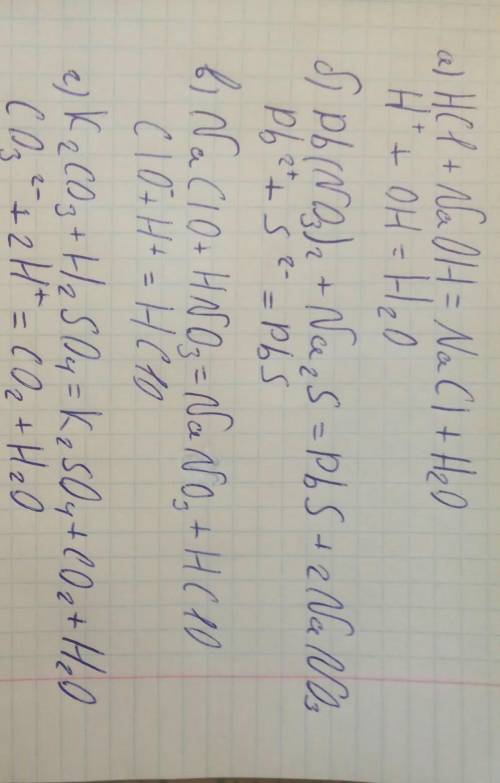 а) HCl + NaOH = NaCl + H₂O
H⁺ + OH = H₂O
б) Pb(NO₃)₂ + Na₂S = PbS + 2NaNO₃
Pb²⁺ + S²⁻ = PbS
в) NaClO + HNO₃ = NaNO₃ + HClO
ClO⁻ + H⁺ = HClO
г) K₂CO₃ + H₂SO₄ = K₂SO₄ + CO₂ + H₂O
CO₃²⁻ + 2H⁺ = CO₂ + H₂O